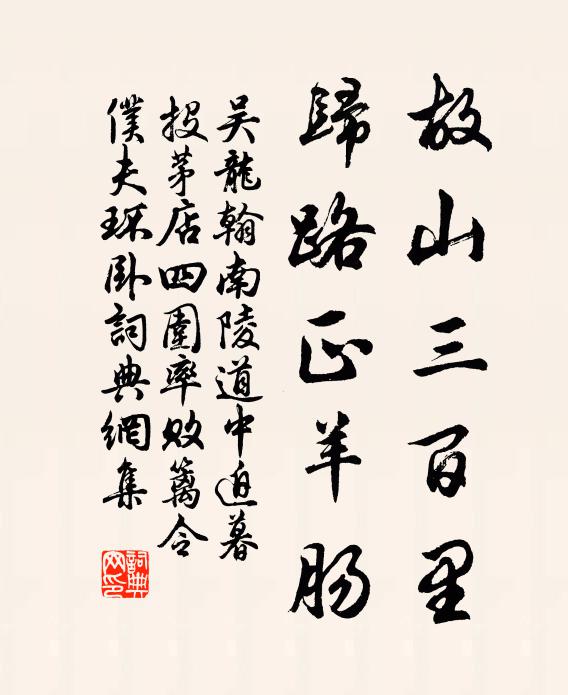 故山三百里
歸路正羊腸
吴龍翰南陵道中迫暮
投茅店四圍率敗籬令
僕夫环卧詞典網集
詞典網印